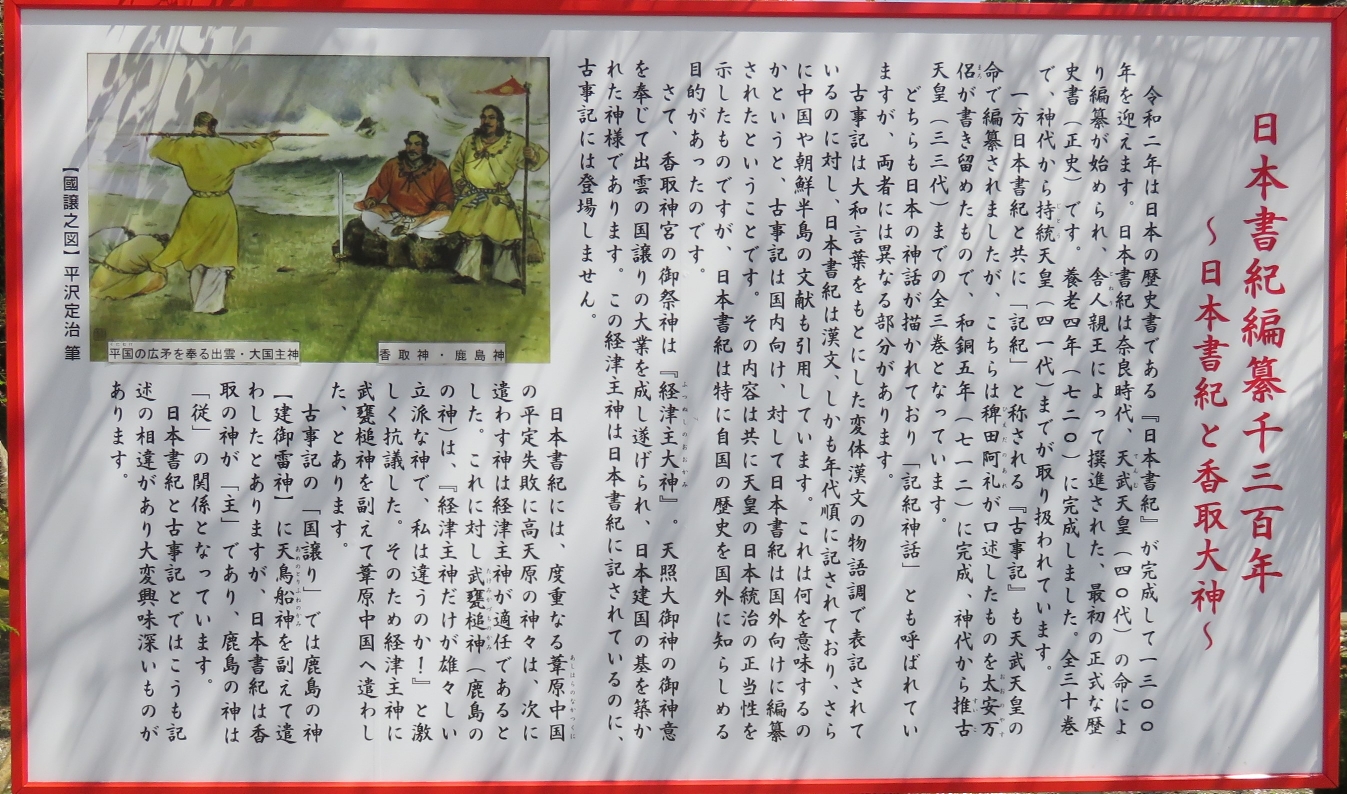 日本書紀編纂千三百年
～日本書紀と香取大神～
令和二年は日本の歴史書である『日本書紀』が完成して一三〇〇
年を迎えます。日本書紀は奈良時代、天武天皇（四〇代）の命によ
り編纂が始められ、舎人親王によって撰進された、最初の正式な歴
史書（正史）です。養老四年（七二〇）に完成しました。全三十巻
で、神代から持統天皇（四一代）までが取り扱われています。
一方日本書紀と共に「記紀」と称される『古事記』も天武天皇の
命で編纂されましたが、こちらは稗田阿礼が口述したものを太安万
侶が書き留めたもので、和銅五年（七一二）に完成、神代から推古
天皇（三三代）までの全三巻となっています。
どちらも日本の神話が描かれており「記紀神話」とも呼ばれてい
ますが、両者には異なる部分があります。
古事記は大和言葉をもとにした変体漢文の物語調で表記されて
いるのに対し、日本書紀は漢文、しかも年代順に記されており、さら
に中国や朝鮮半島の文献も引用しています。これは何を意味するの
かというと、古事記は国内向け、対して日本書紀は国外向けに編纂
されたということです。その内容は共に天皇の日本統治の正当性を
示したものですが、日本書紀は特に自国の歴史を国外に知らしめる
目的があったのです。
さて、香取神宮の御祭神は『経津主大神』。天照大御神の御神意
を奉じて出雲の国譲りの大業を成し遂げられ、日本建国の基を築か
れた神様であります。この経津主神は日本書紀に記されているのに、
古事記には登場しません。
日本書紀には、度重なる葦原中国
の平定失敗に高天原の神々は、次に
遣わす神は経津主神が適任であると
した。これに対し武甕槌神（鹿島の
の神）は、『経津主神だけが雄々しい
立派な神で、私は違うのか！』と激
しく抗議した。そのため経津主神に
武甕槌神を副えて葦原中国へ遣わし
た、とあります。
古事記の「国譲り」では鹿島の神
【建御雷神】に天鳥船神を副えて遣
わしたとありますが、日本書紀は香
取の神が「主」であり、鹿島の神は
「従」の関係となっています。
日本書紀と古事記とではこうも記
述の相違があり大変興味深いものが
あります。
平国の広矛を奉る出雲・大国主神
香取神・鹿島神
【國譲之図】平沢定治　筆